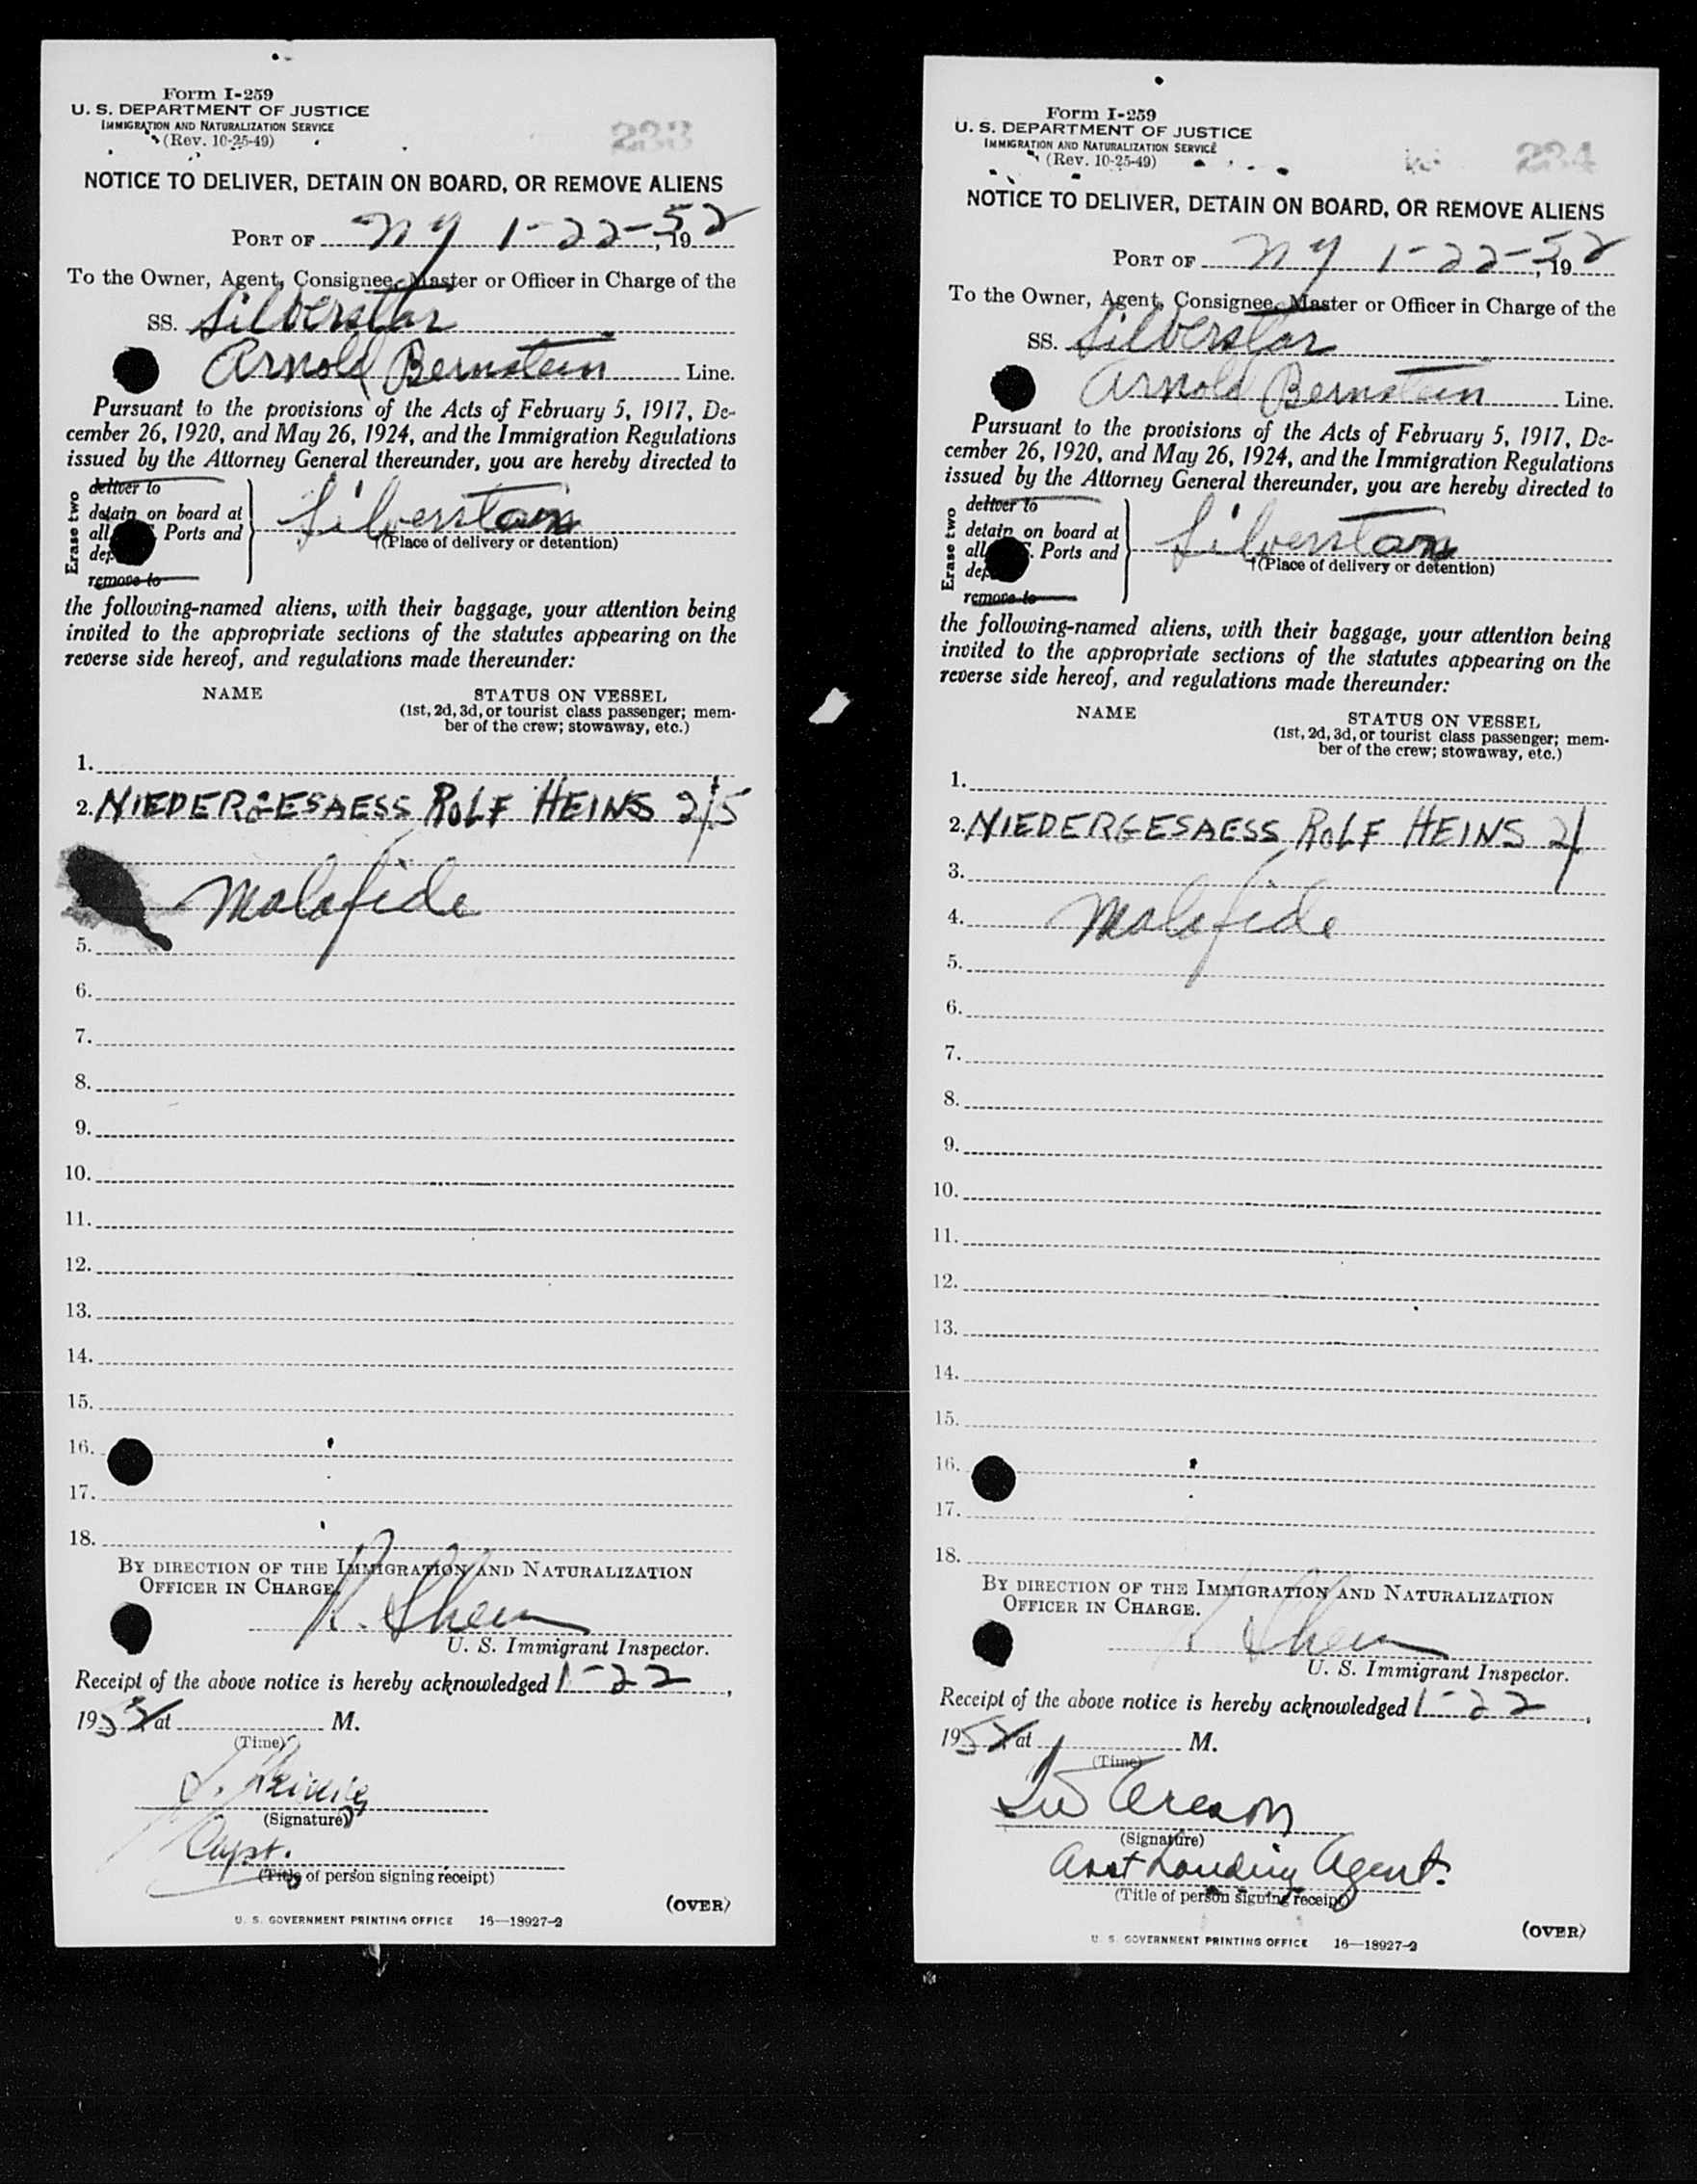 Form I-259
U. S. DEPARTMENT OF JUSTICE
IMMIGRATION AND NATURALIZATION SERVICE
(Rev. 10-25-49)
233
NOTICE TO DELIVER, DETAIN ON BOARD, OR REMOVE ALIENS
PORT OF NY 1-22-, 1952
To the Owner, Agent, Consignee, Master or Officer in Charge of the
SS. Silverstar
Arnold Bernstein Line.
Pursuant to the provisions of the Acts of February 5, 1917, De-
cember 26, 1920, and May 26, 1924, and the Immigration Regulations
issued by the Attorney General thereunder, you are hereby directed to
Erase two
deliver to
detain on board at
all Ports and
remove to
(Place of delivery or detention)
the following-named aliens, with their baggage, your attention being
invited to the appropriate sections of the statutes appearing on the
reverse side hereof, and regulations made thereunder:
NAME STATUS ON VESSEL
(1st, 2d, 3d, or tourist class passenger; mem-
ber of the crew; stowaway, etc.)
1.
2. NIEDERGESAESS ROLF HEINS
Malafide
5.
6.
7.
8.
9.
10.
11.
12.
13.
14.
15.
16.
17.
18.
BY DIRECTION OF THE IMMIGRATION AND NATURALIZATION
OFFICER IN CHARGE.
U. S. Immigrant Inspector.
Receipt of the above notice is hereby acknowledged 1-22,
1952 at M.
(Time)
(Signature)
Capt.
(Title of person signing receipt)
(OVER)
U. S. GOVERNMENT PRINTING OFFICE 16—18927-2
Form I-259
U. S. DEPARTMENT OF JUSTICE
IMMIGRATION AND NATURALIZATION SERVICE
(Rev. 10-25-49)
234
NOTICE TO DELIVER, DETAIN ON BOARD, OR REMOVE ALIENS
PORT OF NY 1-22-, 1952
To the Owner, Agent, Consignee, Master or Officer in Charge of the
SS. Silverstar
Arnold Bernstein Line.
Pursuant to the provisions of the Acts of February 5, 1917, De-
cember 26, 1920, and May 26, 1924, and the Immigration Regulations
issued by the Attorney General thereunder, you are hereby directed to
Erase two
deliver to
detain on board at
all Ports and
remove to
(Place of delivery or detention)
the following-named aliens, with their baggage, your attention being
invited to the appropriate sections of the statutes appearing on the
reverse side hereof, and regulations made thereunder:
NAME STATUS ON VESSEL
(1st, 2d, 3d, or tourist class passenger; mem-
ber of the crew; stowaway, etc.)
1.
2. NIEDERGESAESS ROLF HEINS
3.
4. Malafide
5.
6.
7.
8.
9.
10.
11.
12.
13.
14.
15.
16.
17.
18.
BY DIRECTION OF THE IMMIGRATION AND NATURALIZATION
OFFICER IN CHARGE.
U. S. Immigrant Inspector.
Receipt of the above notice is hereby acknowledged 1-22,
1952 at M.
(Time)
(Signature)
Asst Landing Agent.
(Title of person signing receipt)
(OVER)
U. S. GOVERNMENT PRINTING OFFICE 16—18927-2